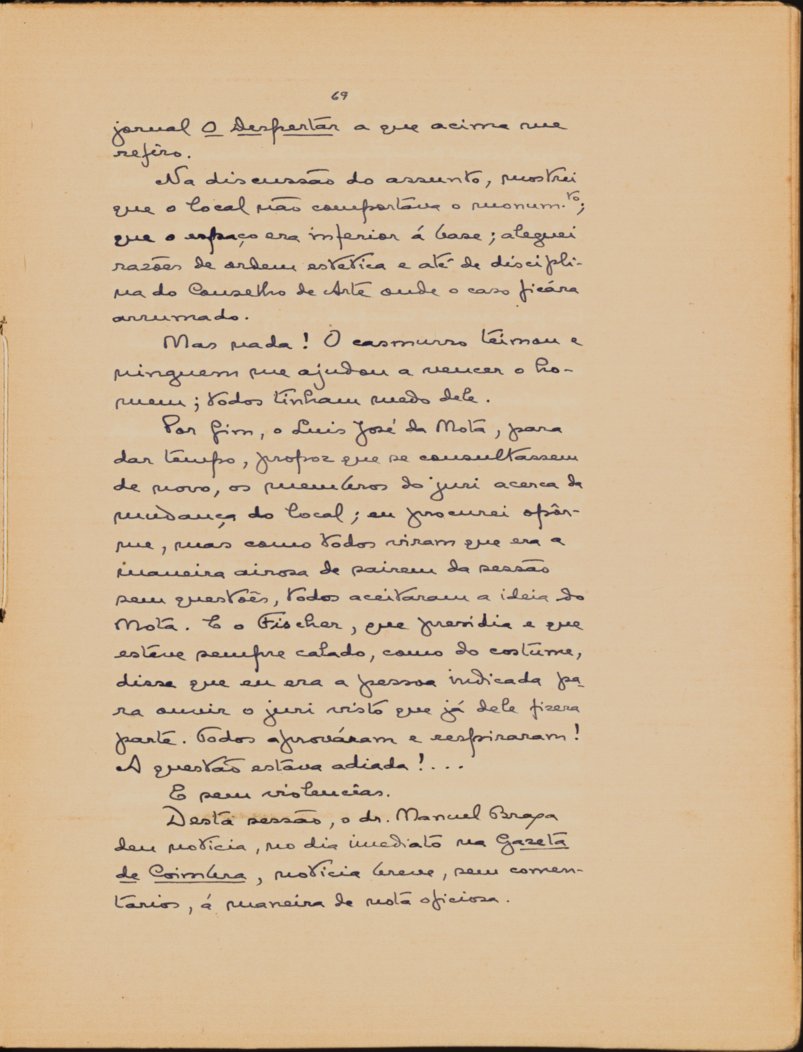 69
jornal O Despertar a que acima me
refiro.
Na discussão do assunto, mostrei
que o local não comportava o monum.to;
que o espaço era inferior á base; aleguei
razões de ordem estetica e até de discipli-
na do Conselho de Arte onde o caso ficára
arrumado.
Mas nada! O casmurro teimou e
ninguem me ajudou a vencer o ho-
mem; todos tinham medo dele.
Por fim, o Luis José da Mota, para
dar tempo, propoz que se consultassem
de novo, os membros do juri acerca da
mudança do local; eu procurei opôr-
me, mas como todos viram que era a
maneira airosa de sairem da sessão
sem questões, todos aceitaram a ideia do
Mota. E o Fischer, que presidia e que
esteve sempre calado, como do costume,
disse que eu era a pessoa indicada pa-
ra ouvir o juri visto que já dele fizera
parte. Todos aprováram e respiraram!
A questão estava adiada!...
E sem violencias.
Desta sessão, o dr. Manuel Braga
deu noticia, no dia imediato na Gazeta
de Coimbra, noticia breve, sem comen-
tarios, á maneira de nota oficiosa.